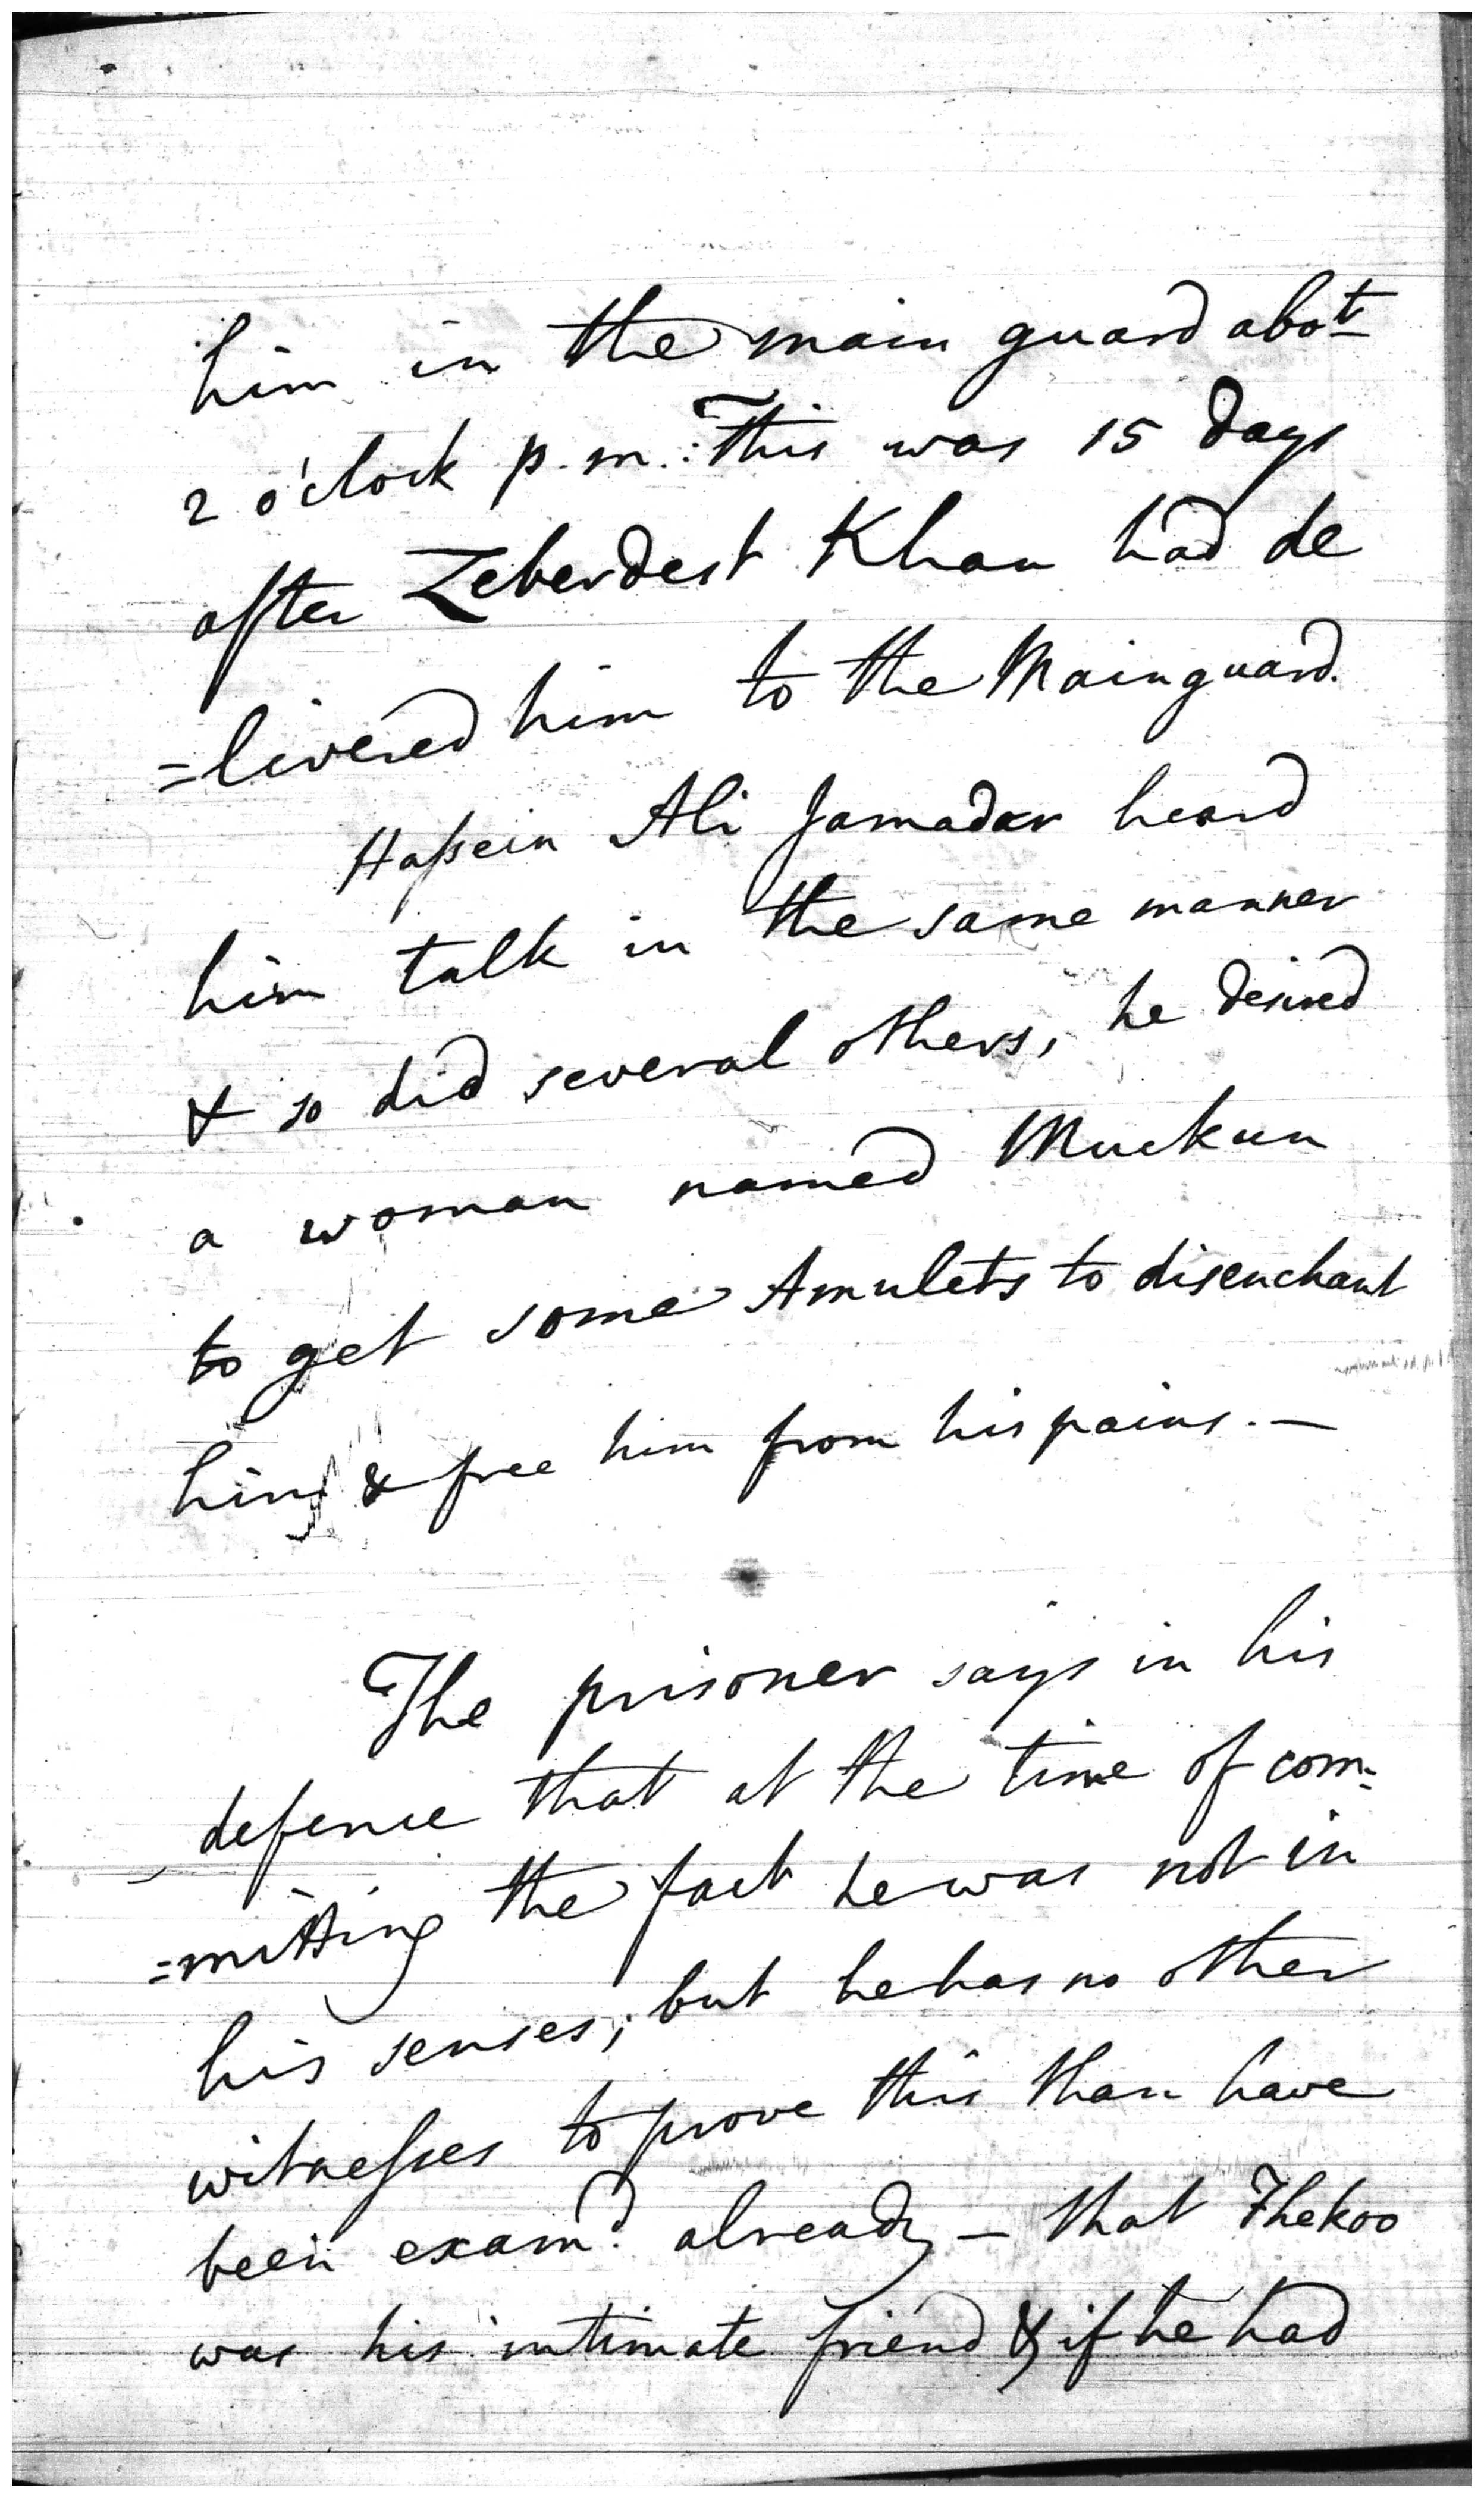 him in the main guard abot
2 o'clock p.m. This was 15 days
after Zeberdest Khan had de
=livered him to the Mainguard.
Hassein Ali Jamadar heard
him talk in the same manner
& so did several others, he desired
a woman named Muckun
to get some Amulets to disenchant
him & free him from his pains. —
The prisoner says in his
defence that at the time of com=
=mitting the fact he was not in
his senses; but he has no other
witnesses to prove this than have
been examd. already — that Thekoo
was his intimate friend & if he had